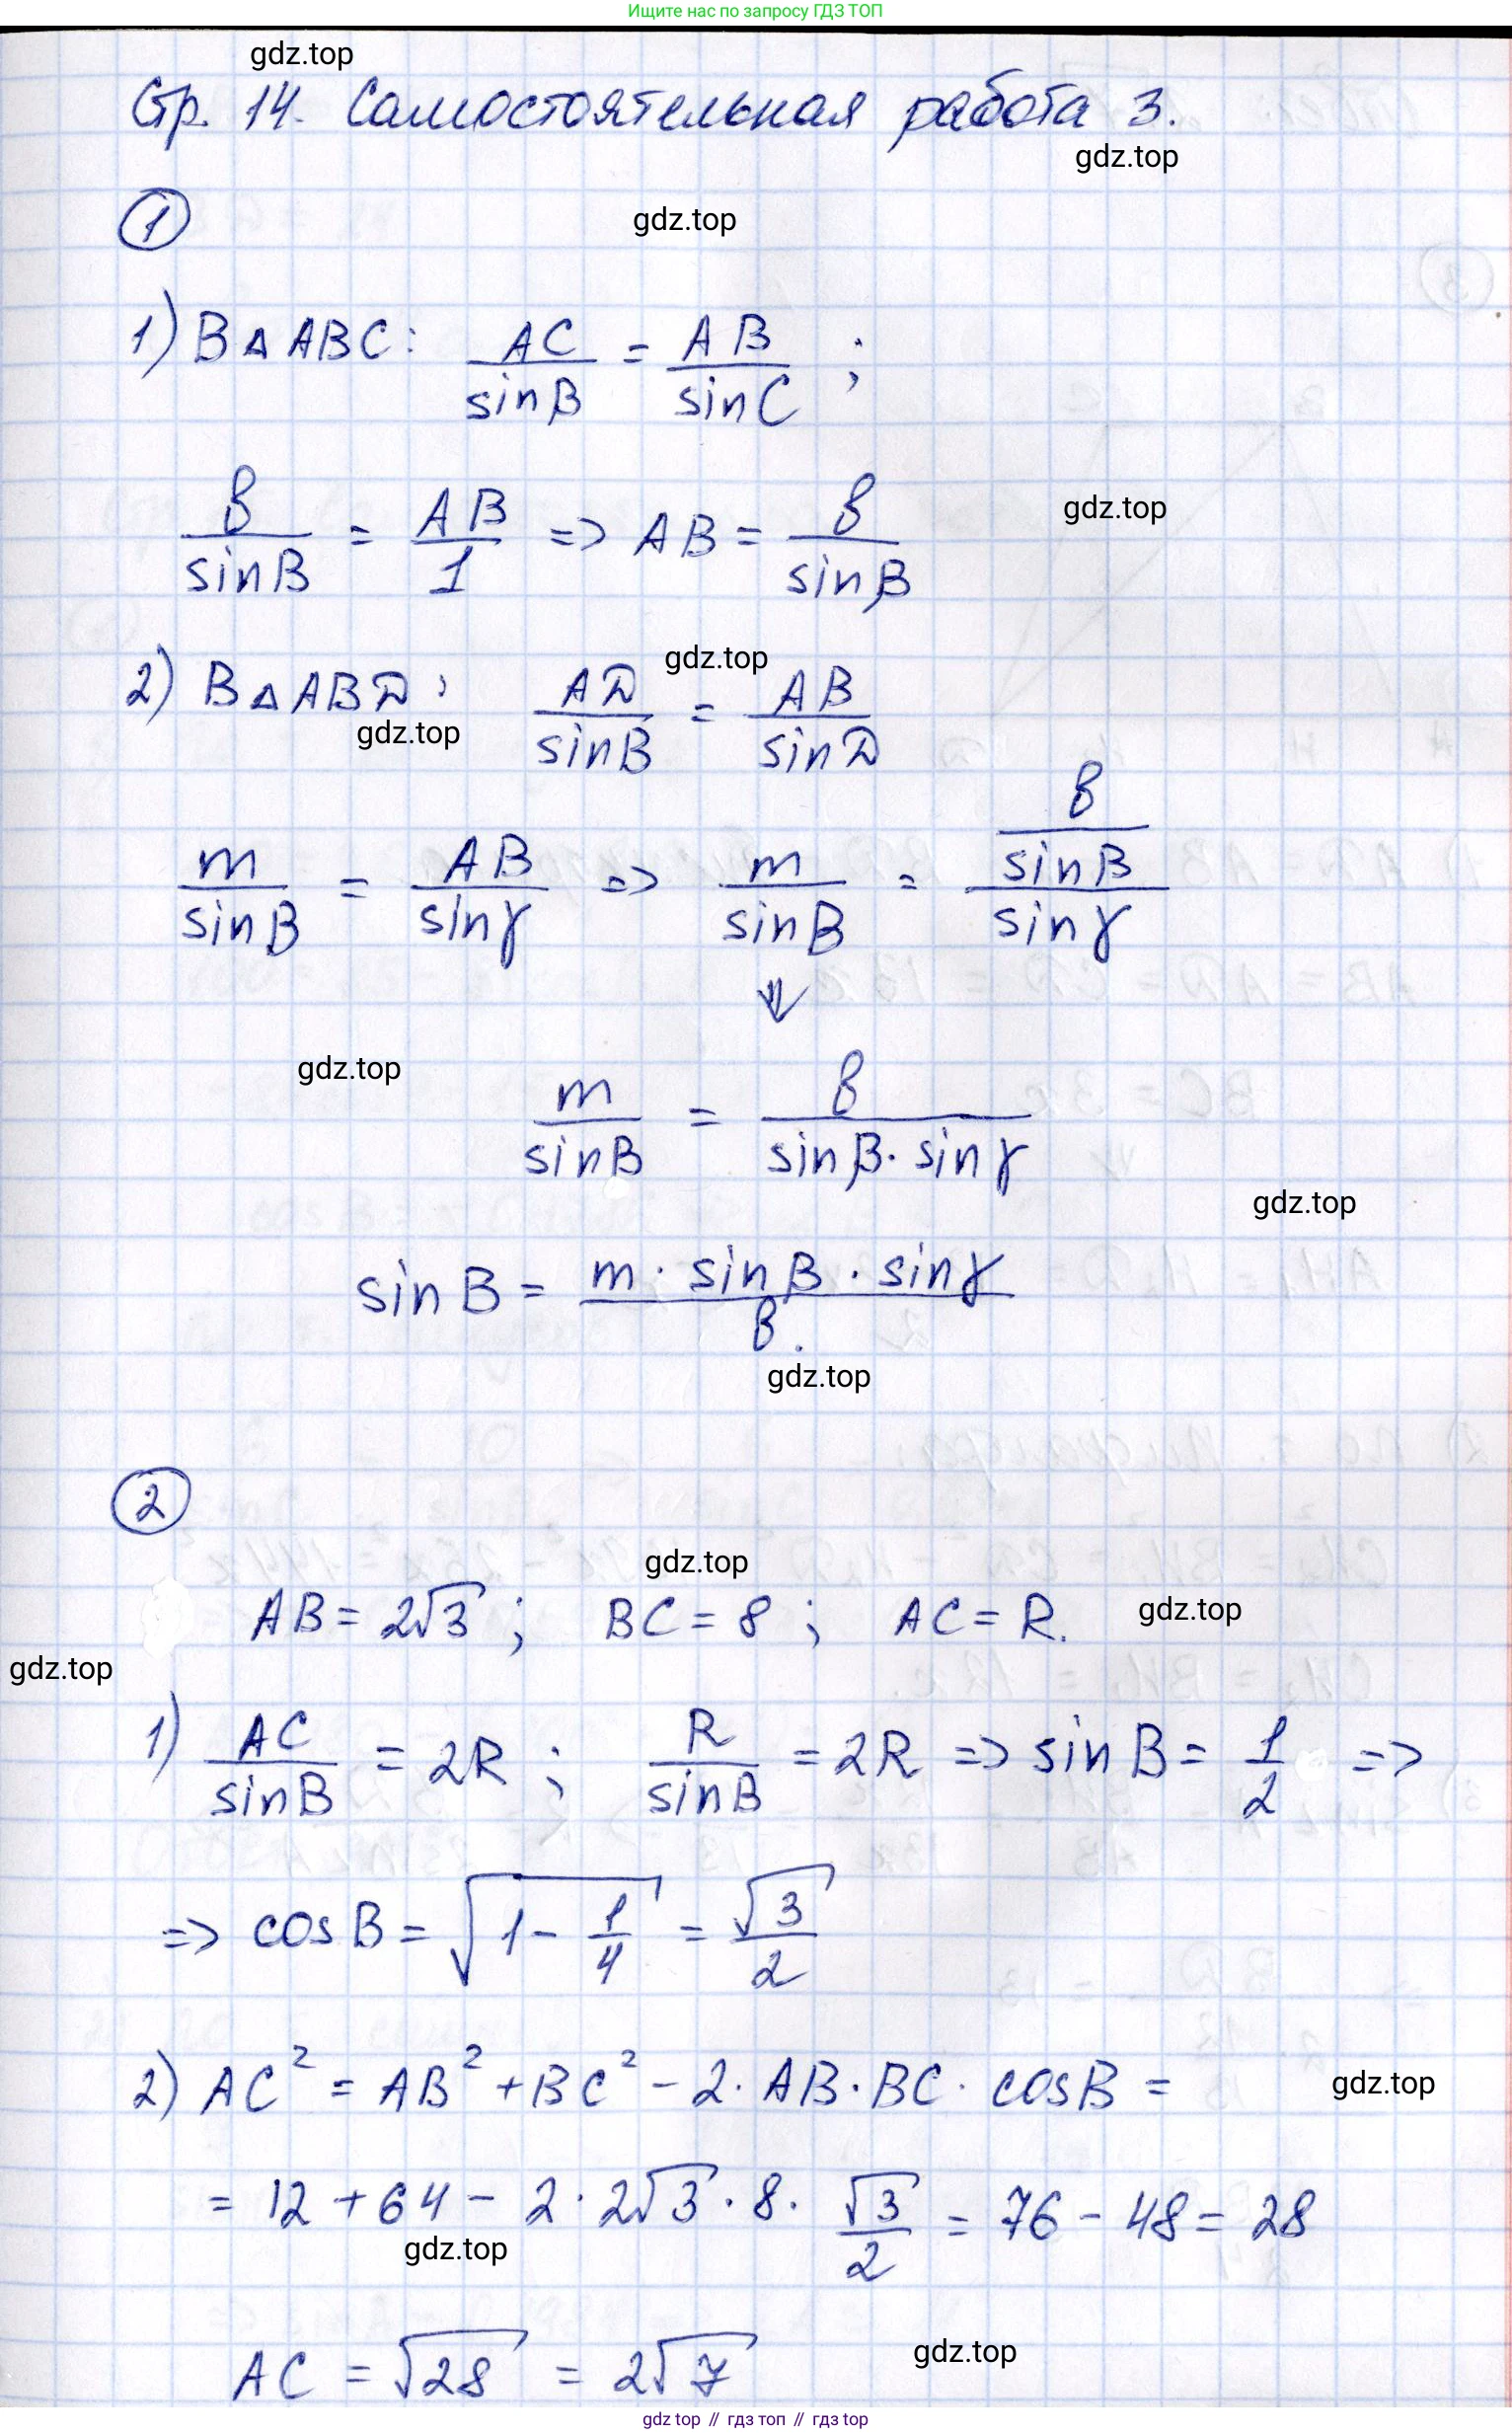 Ищите нас по запросу ГДЗ ТОП
gdz.top
Стр. 14. Самостоятельная работа 3.
gdz.top
① gdz.top
1) В △ ABC: AC/sinβ = AB/sinC ;
в/sinB = AB/1 => AB = в/sinβ
gdz.top
gdz.top
2) В △ ABD: AD/sinB = AB/sinD
gdz.top
m/sinB = AB/sinγ => m/sinB = (в/sinβ)/sinγ
⇓
gdz.top
m/sinB = в/(sinβ · sinγ)
gdz.top
sin B = (m · sinβ · sinγ)/в.
gdz.top
②
gdz.top
AB = 2√3 ; BC = 8 ; AC = R.
gdz.top
gdz.top
1) AC/sinB = 2R ; R/sinB = 2R => sin B = 1/2 =>
=> cos B = √(1 - 1/4) = √3/2
2) AC² = AB² + BC² - 2 · AB · BC · cosB =
gdz.top
= 12 + 64 - 2 · 2√3 · 8 · √3/2 = 76 - 48 = 28
gdz.top
AC = √28 = 2√7
gdz.top
gdz top // гдз топ // gdz top